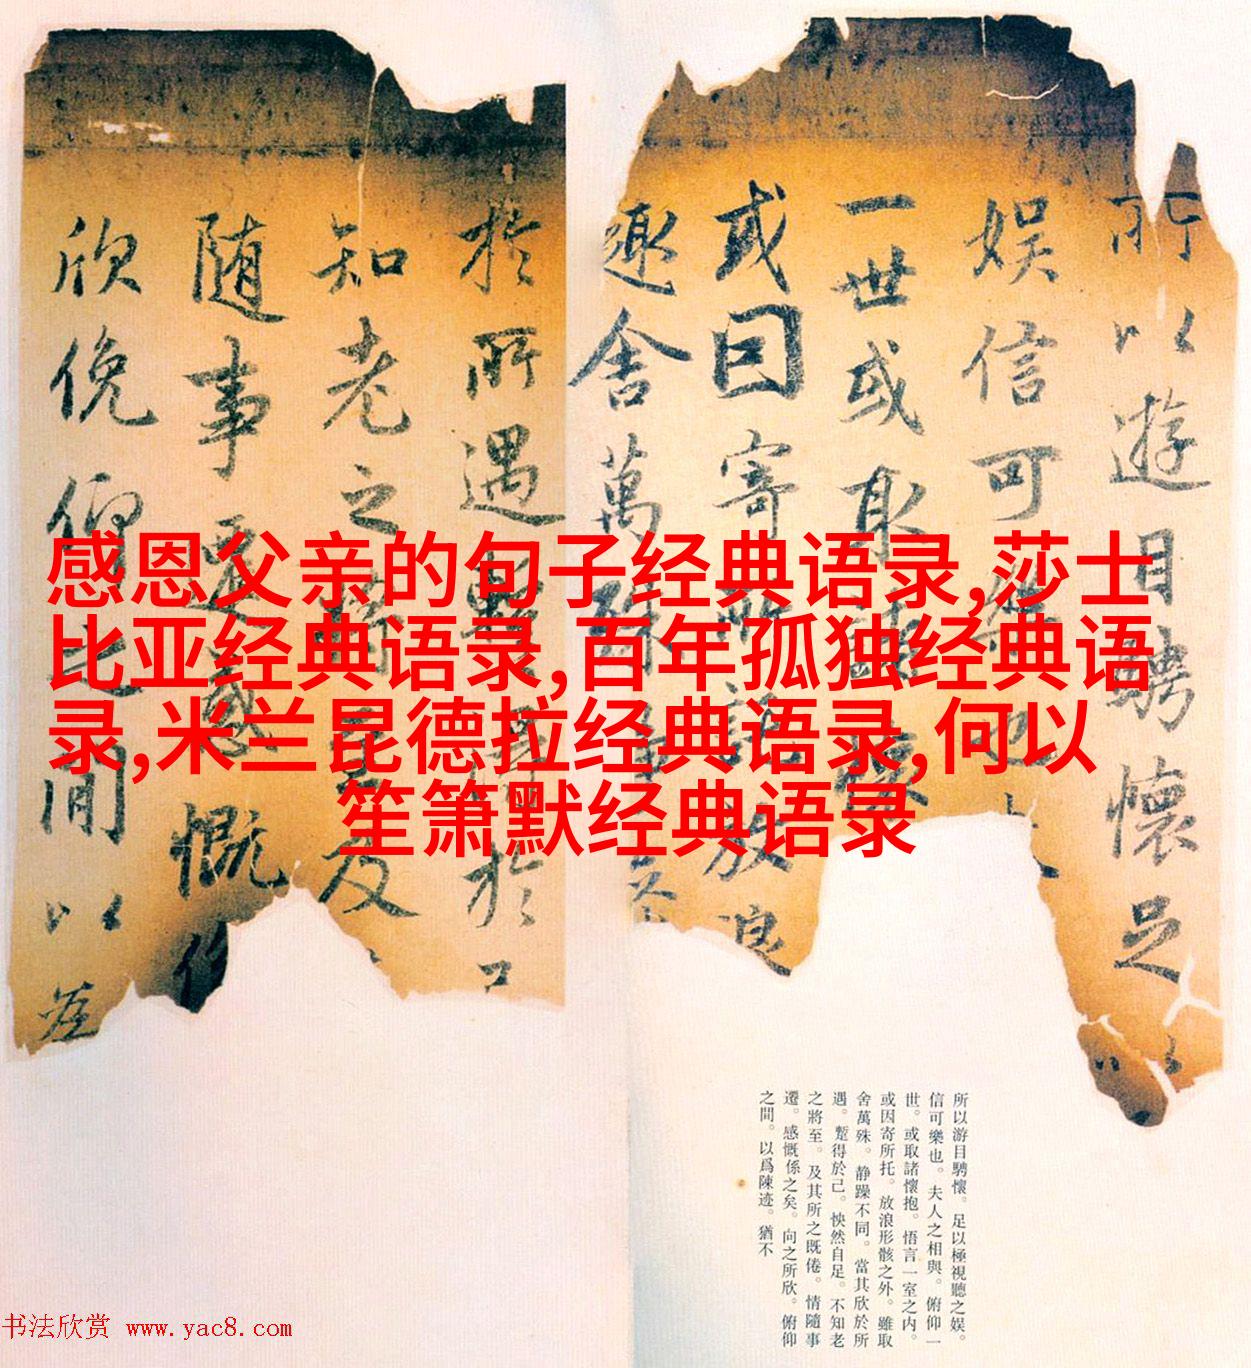 所以遊目騁懷足
娱信可樂也夫
一世或取諸懷
或因寄所託放浪
趣舍萬殊靜
於所遇蹔得於己
知老之將至及
隨事遷感慨係
欣俛仰之間以為
感恩父亲的句子经典语录,莎士
比亚经典语录,百年孤独经典语
录,米兰昆德拉经典语录,何以
笙箫默经典语录
所以游目騁懷。足以極視聽之娱。
信可樂也。夫人之相與。俯仰一
世。或取諸懷抱。悟言一室之内。
或因寄所托。放浪形骸之外。雖取
舍萬殊。静躁不同。當其欣於所
遇。蹔得於己。怏然自足。不知老
之將至。及其所之既倦。情隨事
遷。感慨係之矣。向之所欣。俯仰
之間。以爲陳迹。猶不
书法欣赏 www.yac8.com